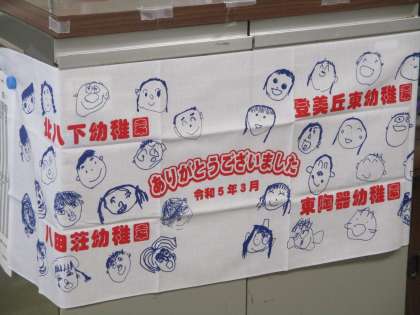 北八下幼稚園
登美丘東幼稚園
ありがとうございました
令和5年3月
八田荘幼稚園
東陶器幼稚園